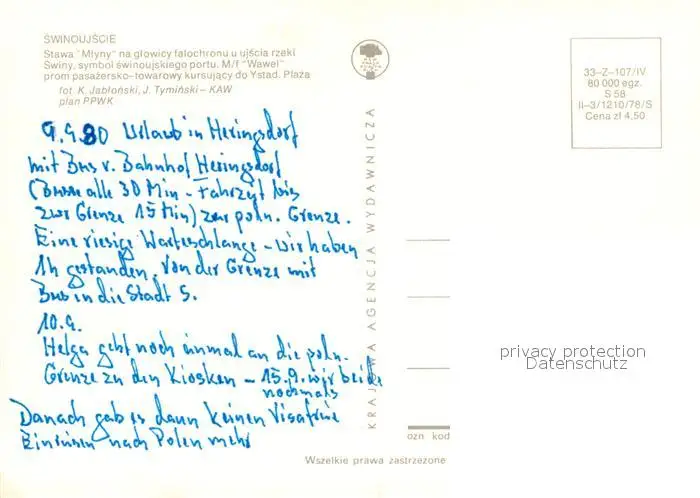 ŚWINOUJŚCIE
Stawa "Młyny" na głowicy falochronu u ujścia rzeki
Świny, symbol świnoujskiego portu. M/f "Wawel"
prom pasażersko-towarowy kursujący do Ystad. Plaża
fot K. Jabłoński, J. Tymiński – KAW
plan PPWK
33–Z–107/IV
80 000 egz.
S 58
II–3/1210/78/S
Cena zł 4,50
9.9.80 Urlaub in Heringsdorf
mit Bus v. Bahnhof Heringsdorf
(Busse alle 30 Min – Fahrzeit bis
zur Grenze 15 Min) zur poln. Grenze.
Eine riesige Warteschlange – wir haben
1h gestanden. Von der Grenze mit
Bus in die Stadt S.
10.9.
Helga geht noch einmal an die poln.
Grenze zu den Kiosken – 15.9. wir beide
nochmals
Danach gab es dann keinen Visafreie
nach Polen mehr
KRAJOWA AGENCJA WYDAWNICZA
privacy protection
Datenschutz
ozn kod
Wszelkie prawa zastrzeżone